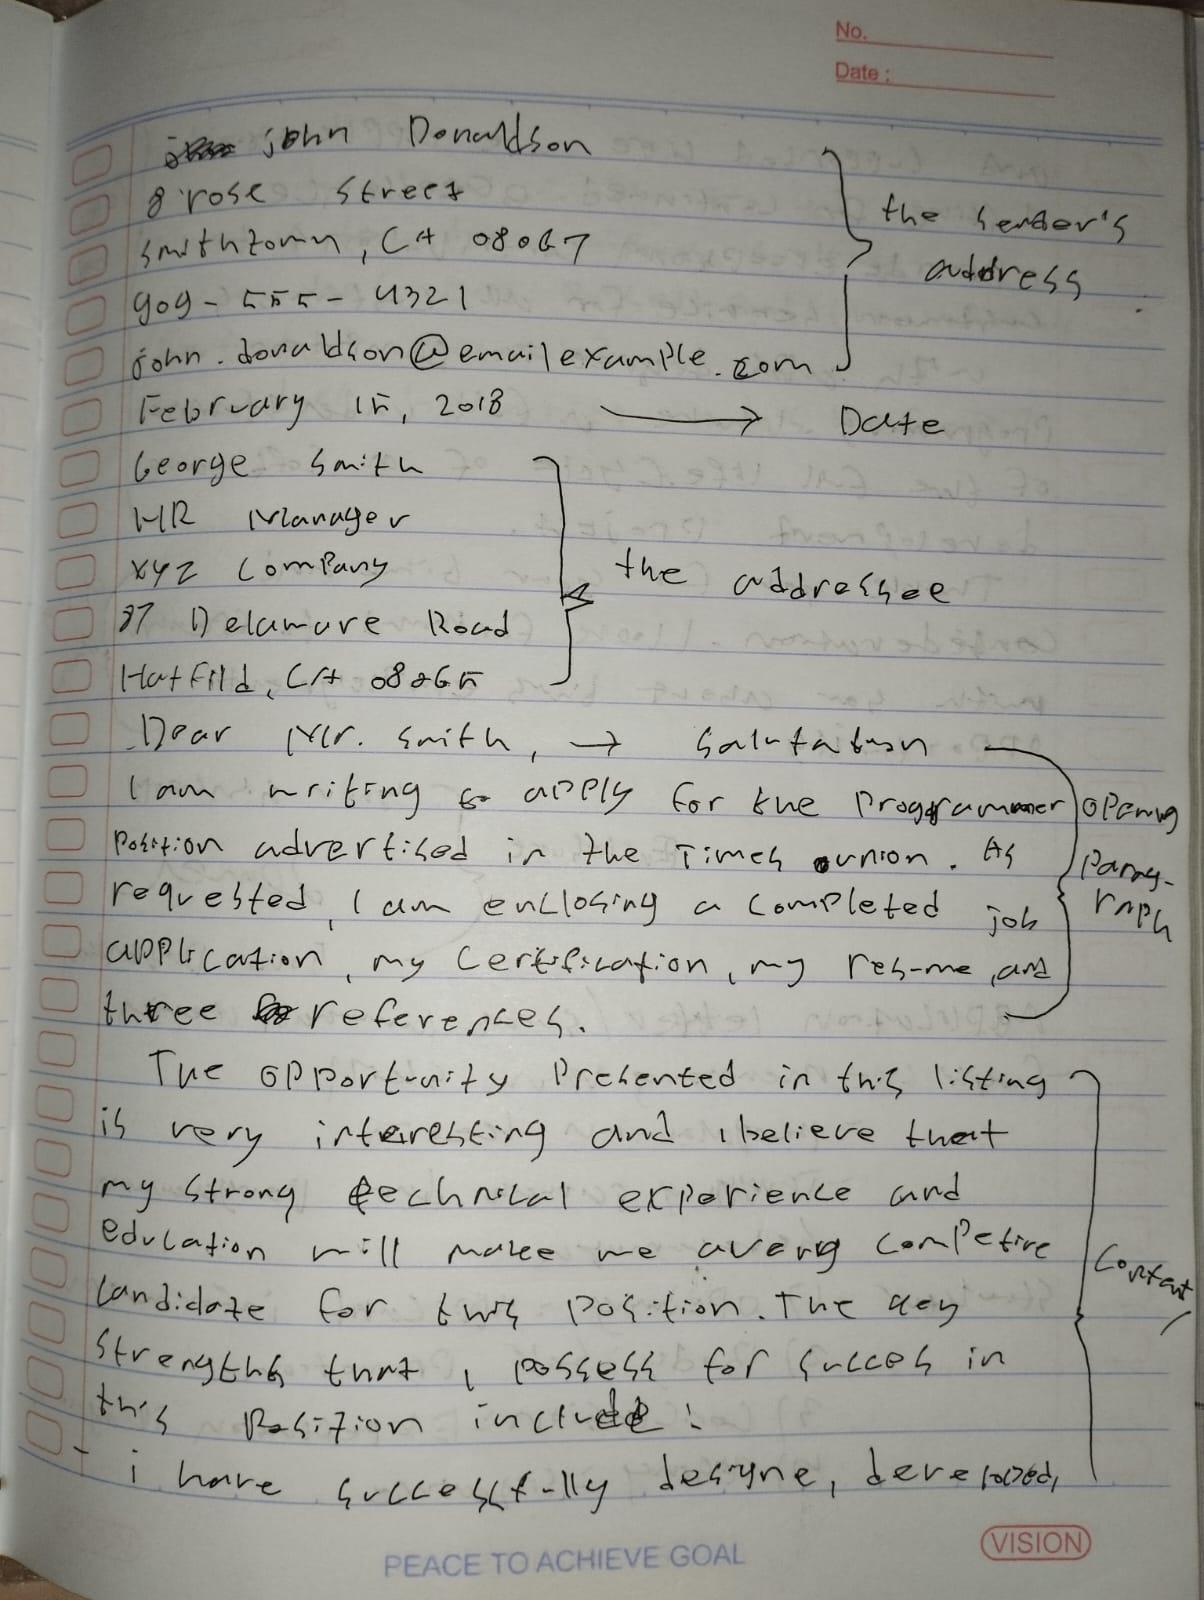 No.
Date :
john Donaldson
8 rose Street
Smithtown, CA 08067
909-555-4321
john.donaldson@emailexample.com
the sender's
address
February 15, 2018 → Date
George Smith
HR Manager
XYZ Company
87 Delaware Road
Hatfild, CA 08065
the addressee
Dear Mr. Smith, → Salutation
I am writing to apply for the Programmer
Position advertised in the Times union. As
requested, I am enclosing a completed job
application, my certification, my resume, and
three references.
opening
Parag-
raph
The opportunity Presented in this listing
is very interesting and i believe that
my strong technical experience and
education will make me avery competive
candidate for this position. The key
strengths that i possess for succes in
this Position include:
Content
- i have successfully designe, developed,
PEACE TO ACHIEVE GOAL
VISION